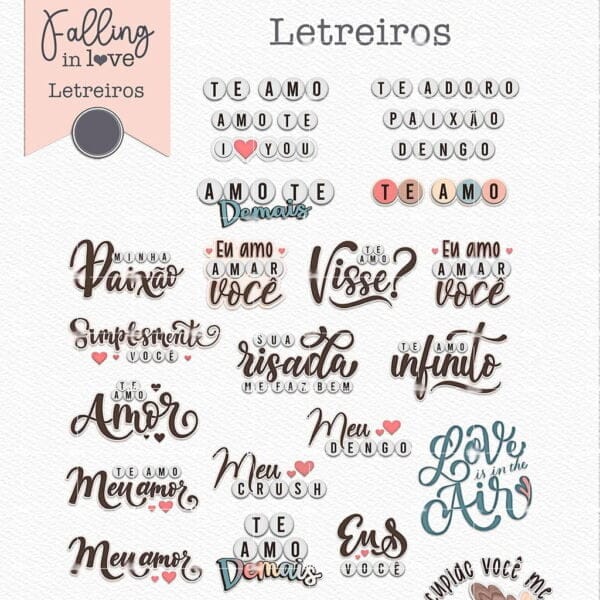 Falling
in love
Letreiros
Letreiros
TE AMO
AMO TE
I YOU
AMO TE
Demais
TE ADORO
PAIXÃO
DENGO
TE AMO
MINHA
Paixão
Eu amo
AMAR
você
TE
AMO
Visse?
Eu amo
AMAR
você
Simplesmente
VOCÊ
SUA
risada
ME FAZ BEM
TE AMO
infinito
TE
AMO
Amor
Meu
DENGO
TE AMO
Meu amor
Meu
CRUSH
Love
is in the
Air
Meu amor
TE
AMO
Demais
Eu
VOCÊ
cupido você me